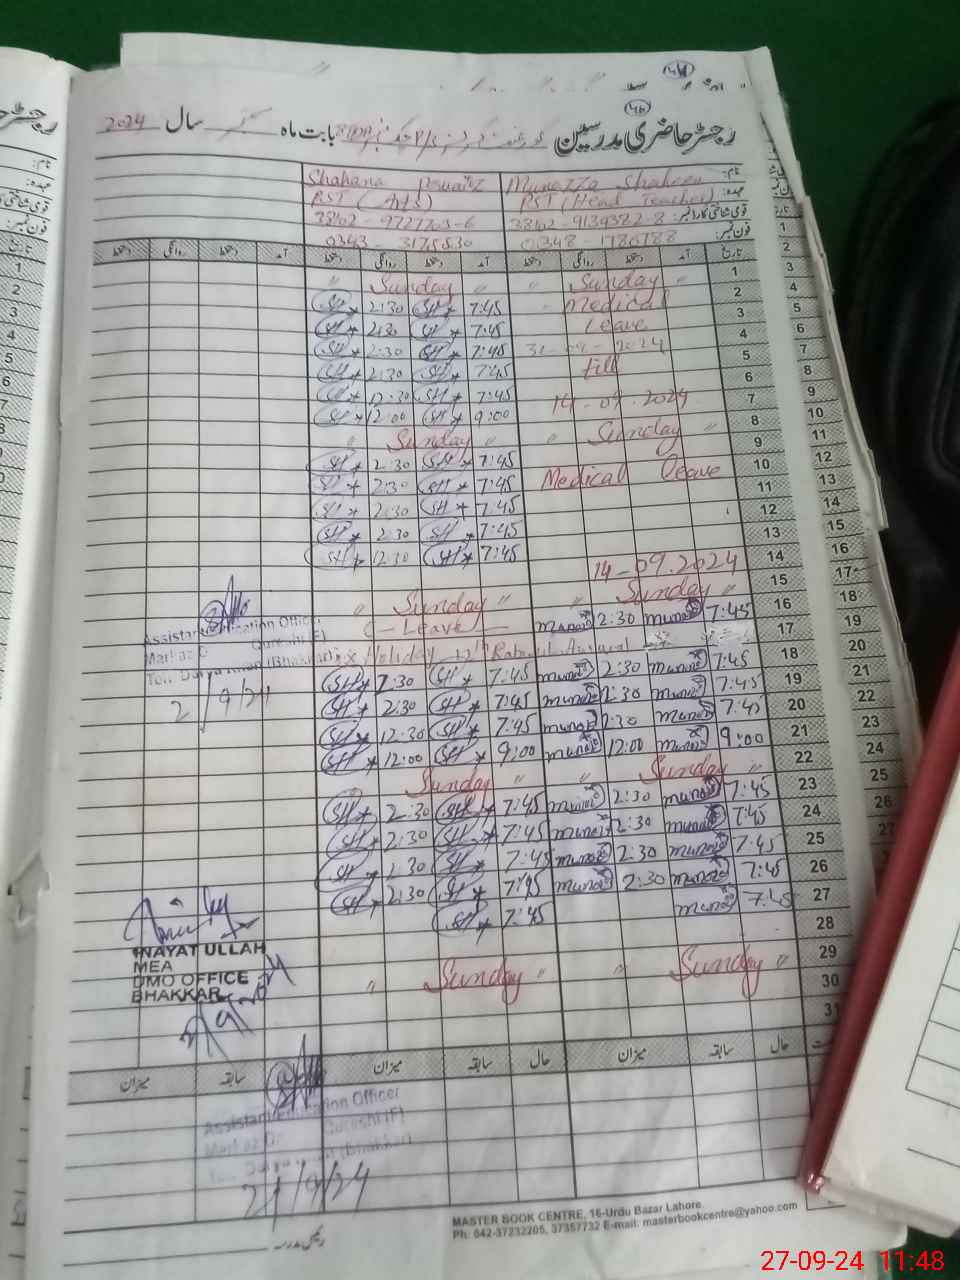 رجسٹر حاضری مدرسین
بابت ماہ ستمبر سال 2024
نام: Munazza Shaheen Shahana Powaitz
عہدہ: PST (Head Teacher) PST (Arts)
قومی شناختی کارڈ نمبر: 38102-9139322-8 38102-9727703-6
فون نمبر: 0348-1786788 0343-3175830
تاریخ آمد دستخط روانگی دستخط آمد دستخط روانگی دستخط آمد دستخط روانگی دستخط
1 " Sunday " " Sunday "
2 Medical 7:45 SH 2:30 SH
3 Leave 7:45 SH 2:30 SH
4 31-09-2024 7:45 SH 2:30 SH
5 till 7:45 SH 2:30 SH
6 7:45 SH 12:30 SH
7 14.09.2024 9:00 SH 12:00 SH
8 " Sunday " " Sunday "
9 7:45 SH 2:30 SH
10 Medical Leave 7:45 SH 2:30 SH
11 7:45 SH 2:30 SH
12 7:45 SH 2:30 SH
13 7:45 SH 12:30 SH
14 14-09.2024
15 " Sunday " " Sunday "
16 7:45 2:30 - Leave -
17 Holiday 12th Rabiul Awwal
18 7:45 2:30 7:45 SH 2:30 SH
19 7:45 2:30 7:45 SH 2:30 SH
20 7:45 12:30 7:45 SH 12:30 SH
21 9:00 12:00 9:00 SH 12:00 SH
22 " Sunday " " Sunday "
23 7:45 2:30 7:45 SH 2:30 SH
24 7:45 2:30 7:45 SH 2:30 SH
25 7:45 2:30 7:45 SH 2:30 SH
26 7:45 2:30 7:45 SH 2:30 SH
27 7:45 7:45 SH
28
29 " Sunday " " Sunday "
30
31
حال سابقہ میزان حال سابقہ میزان سابقہ میزان
Assistant Education Officer
Markaz Qureshi (F)
Teh. Darya Khan (Bhakkar)
2/9/24
INAYAT ULLAH
MEA
DMO OFFICE
BHAKKAR
Assistant Education Officer
Markaz Qureshi (F)
Darya Khan (Bhakkar)
21/9/24
رئیس مدرسہ
MASTER BOOK CENTRE, 16-Urdu Bazar Lahore.
Ph: 042-37232205, 37357732 E-mail: masterbookcentre@yahoo.com
27-09-24 11:48